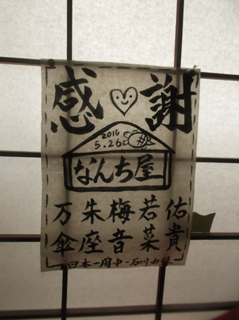 感謝
2016
5.26
なんち屋
万朱梅若佑
傘座音菜貴
日本一周中